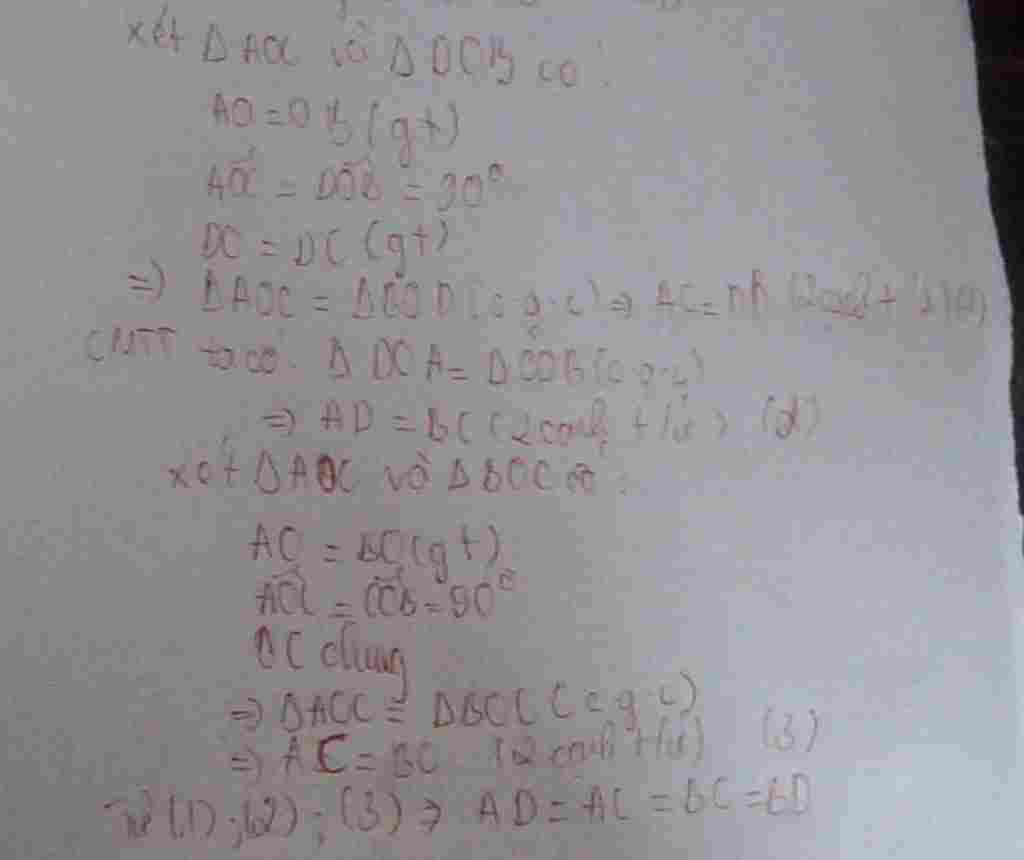 xét Δ AOC và Δ DOB có:
AO = OB (gt)
AOC = DOB = 90°
OC = DC (gt)
=> ΔAOC = ΔBOD (c.g.c) => AC = (2 cạnh t
CMTT ta có: Δ DOA = Δ COB (c.g.c)
=> AD = BC (2 cạnh t/ứ) (2)
xét ΔAOC và ΔBOC có:
AO = BO (gt)
AOC = COB = 90°
OC chung
=> ΔAOC = ΔBOC (c.g.c)
=> AC = BC (2 cạnh t/ứ) (3)
Từ (1); (2); (3) => AD = AC = BC = BD